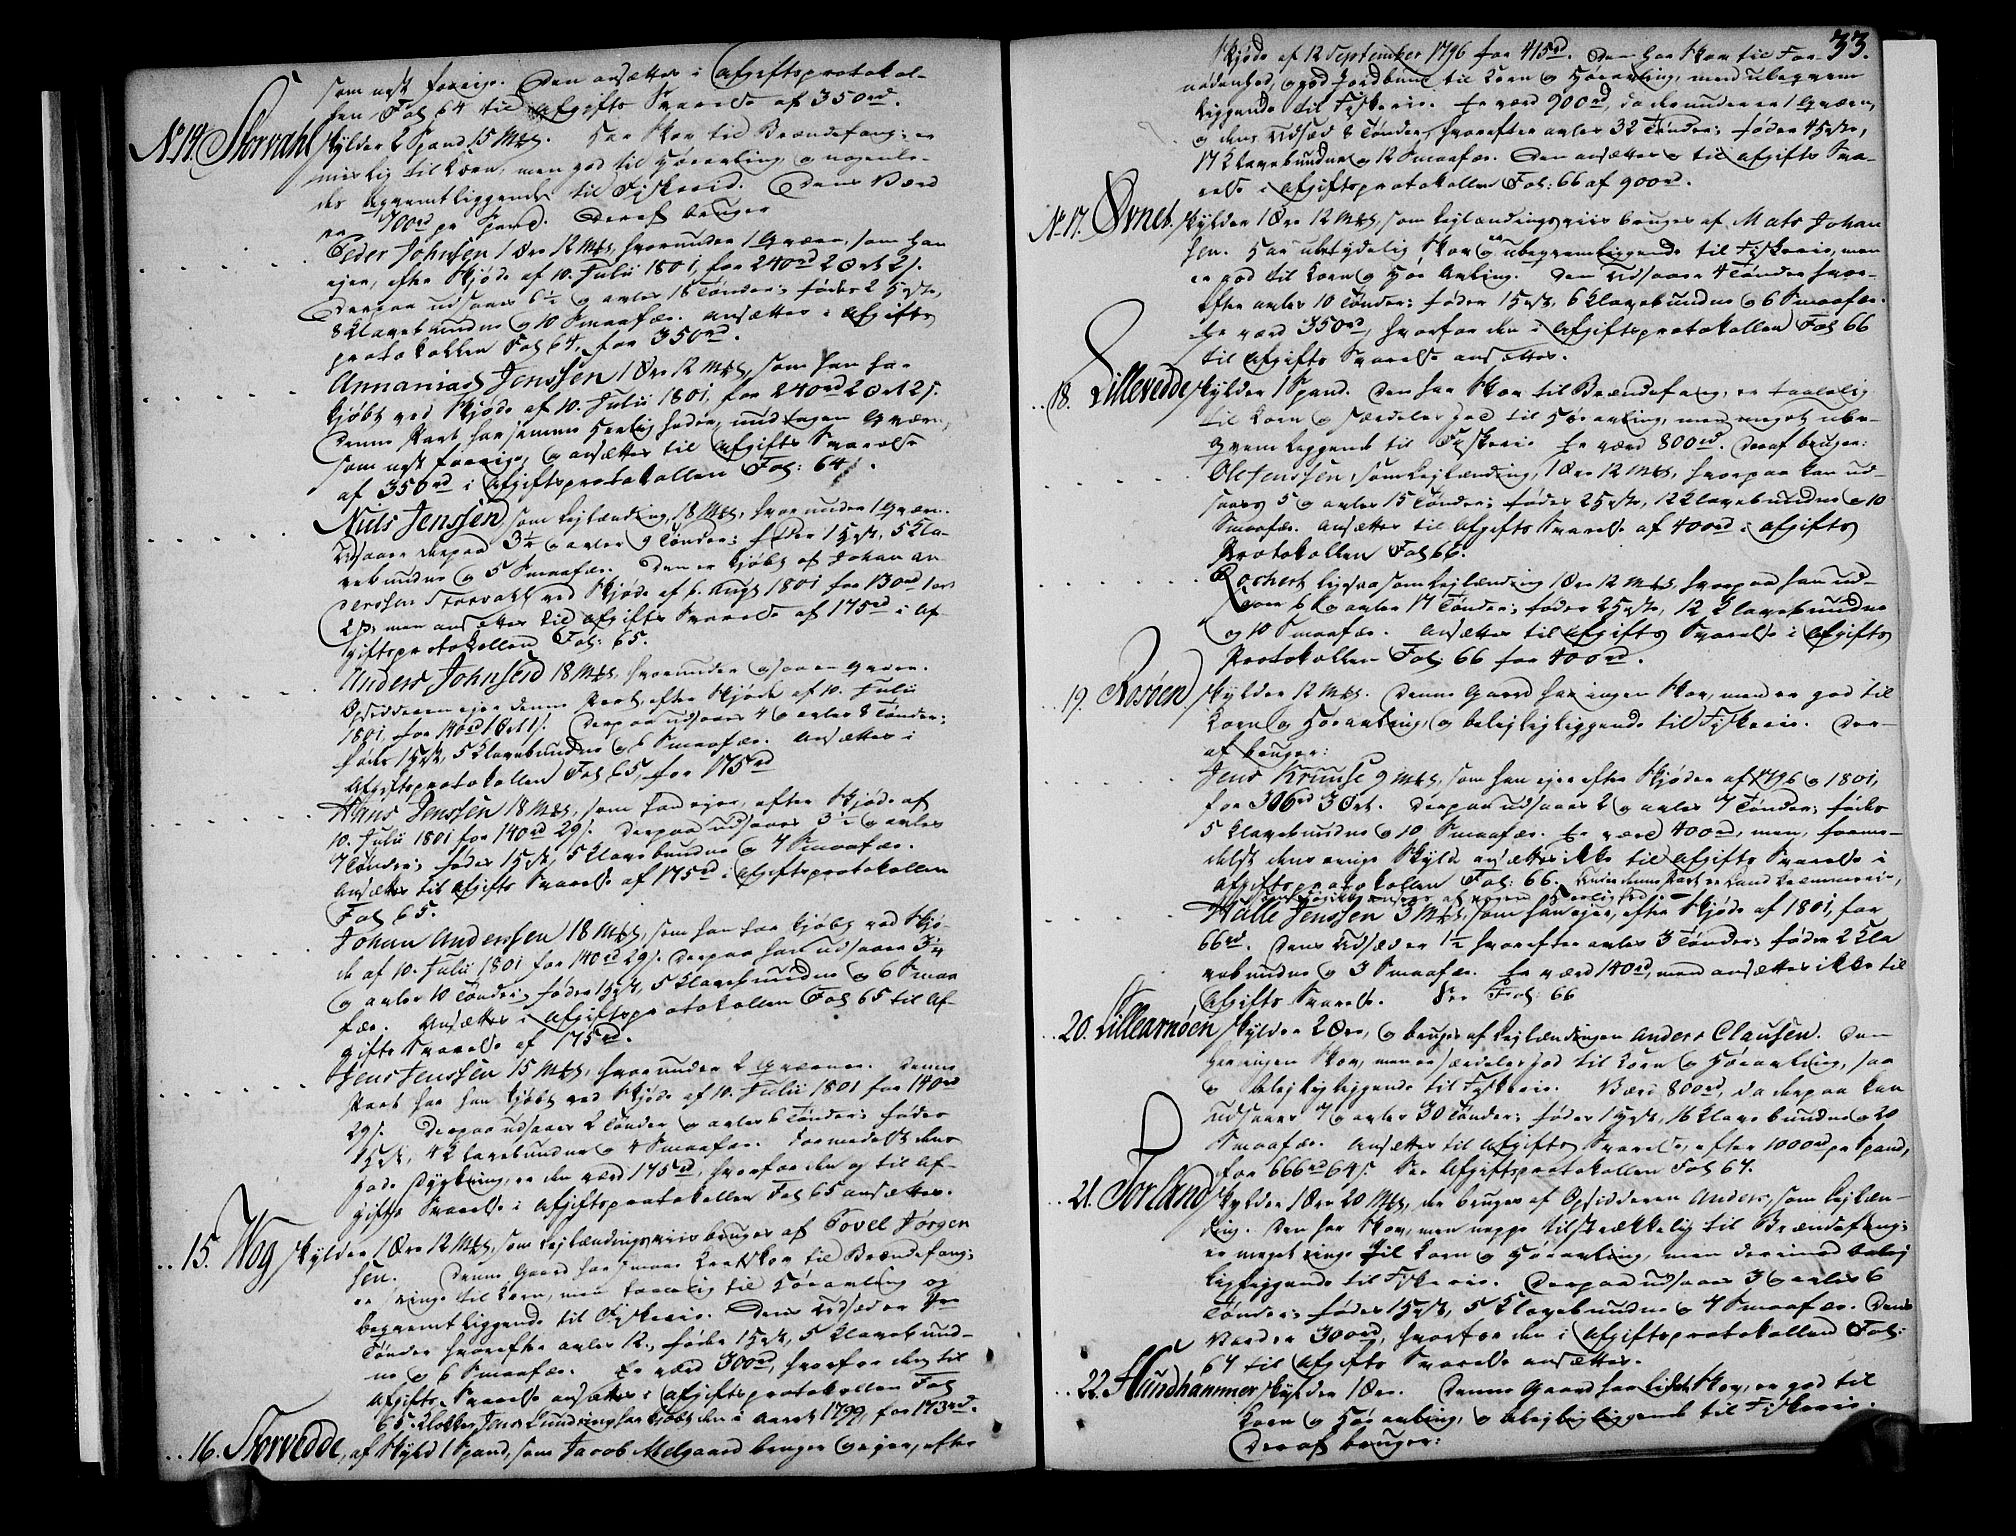 som næst forrige. Den ansættes i Afgiftsprotokol-
len Fol 64 til Afgifts Svarelse af 350rd.
No 14. Storvahl skylder 2 Spand 15 Mkl. Har Skov til Brændefang; er
mislig til Korn, men god til Høeavling og nogenle-
des beqvemt liggende til Fiskerie. Dens Værd
er 700rd pr Spand. Deraf bruger
Peder Johnsen 1 Øre 12 Mkl, hvorunder 1 Qværn, som han
ejer, efter Skjøde af 10. Julii 1801, for 240rd 2 Ort 2s.
Derpaa udsaaes 6½ og avles 18 Tønder; fødes 2 Heste,
8 Klavebundne og 10 Smaafæe. Ansættes i Afgifts
protokollen Fol 64, for 350rd.
Annanias Jenssen 1 Øre 12 Mkl, som han ha-
kjøbt ved Skjøde af 10. Julii 1801, for 240rd 2 Ort 2s.
Denne Part har samme Herligheder, und ingen Qværn,
som næst forrige, og ansættes til Afgifts Svarelse
af 350rd i Afgiftsprotokollen Fol: 64.
Niels Jenssen, som Lejlænding, 18 Mkl, hvorunder 1 Qværn.
Udsaaer derpaa 3½ og avler 9 Tønder; føder 1 Hest, 5 Kla-
vebundne og 5 Smaafæe. Den er kjøbt af Johan An-
derssen Storvahl ved Skjøde af 6. Augt 1801 for 130rd 1 ort
2s; men ansættes til Afgifts Svarelse af 175rd i Af-
giftsprotokollen Fol: 65.
Anders Johnsen 18 Mkl, hvorunder ogsaa en Qværn.
Opsidderen ejer denne Part, efter Skjøde af 10. Julii
1801, for 140rd 1 Ort 1s. Derpaa udsaaes 4 og avles 8 Tønder;
fødes 1 Hest, 5 Klavebundne og 6 Smaafæe. Ansættes i
Afgiftsprotokollen Fol 65, for 175rd
Hans Jenssen 18 Mkl, som han ejer, efter Skjøde af
10. Julii 1801 for 140rd 29s. Derpaa udsaaes 3½ og avles
7 Tønder; fødes 1 Hest, 5 Klavebundne og 7 Smaafæe.
Ansættes til Afgifts Svarelse af 175rd i Afgiftsprotokollen
Fol 65.
Johan Anderssen 18 Mkl, som han har kjøbt ved Skjø-
de af 10. Julii 1801 for 140rd 29s. Derpaa han udsaaer 3¼
og avler 10 Tønder; føder 1 Hest, 5 Klavebundne og 6 Smaa
fæe. Ansættes i Afgiftsprotokollen Fol 65 til Af-
gifts Svarelse af 175rd.
Jens Jenssen 15 Mkl, hvorunder 2 Qværner. Denne
Part har han kjøbt ved Skjøde af 10. Julii 1801 for 140rd
29s. Derpaa udsaaes 2 Tønder og avles 6 Tønder; fødes
1 Hest, 4 Klavebundne og 4 Smaafæe. Formedelst dens
gode Dyrkning, er den værd 175rd, hvorfor den og til Af-
gifts Svarelse i Afgiftsprotokollen Fol 65 ansættes.
15. Wog skylder 1 Øre 12 Mkl, som lejlændingsviis bruges af Povel Jørgen
sen. Denne Gaard har smaae Kratskov til Brændefang;
er ringe til Korn, men taalelig til Høeavling og
beqvemt liggende til Fiskerie. Dens Udsæd er
Tønder hvorefter avles 12, fødes 1 Hest, 5 Klavebund-
ne og 6 Smaafæe. Er værd 300rd, hvorfor den til
Afgifts Svarelse ansættes i Afgiftsprotokollen Fol
65. Klokker Jens Lundring har kjøbt den i Aaret 1799, for 173rd.
16. Storvedde, af Skyld 1 Spand, som Jacob Melgaard bruger og ejer, efter
33.
Skjøde af 12 September 1796 for 415rd. Den har Skov til For-
nødenhed, og god Jordbund til Korn og Høeavling, men ubeqvem
liggende til Fiskerie. Er værd 900rd, da derunder er 1 Qværn,
og dens Udsæd 8 Tønder, hvorefter avles 32 Tønder; fødes 4 Heste,
17 Klavebundne og 12 Smaafæe. Den ansættes og til Afgifts Sva-
relse i Afgiftsprotokollen Fol: 66 af 900rd.
No 17. Ørnet. skylder 1 Øre 12 Mkl, som lejlændingsviis bruges af Mats Johan
sen. Har ubetydelig Skov og er ubeqvemliggende til Fiskerie, men
er god til Korn og Høe Avling. Den udsaaer 4 Tønder hvor-
efter avles 10 Tønder; føder 1 Hest, 6 Klavebundne og 6 Smaafæe.
Er værd 350rd, hvorfor den i Afgiftsprotokollen Fol 66
til Afgifts Svarelse ansættes.
18. Lillevedde skylder 1 Spand. Den har Skov til Brændefang, er taalelig
til Korn og særdeles god til Høeavling, men meget ube-
qvem liggende til Fiskerie. Er værd 800rd. Deraf bruger:
Ole Jenssen, som Lejlænding, 1 Øre 12 Mkl, hvorpaa kan ud-
saaes 5 og avles 15 Tønder; fødes 2 Heste, 12 Klavebundne og 10
Smaafæe. Ansættes til Afgifts Svarelse af 400rd i Afgifts
Protokollen Fol 66.
Lorhert ligesaa som Lejlænding 1 Øre 12 Mkl, hvorpaa han ud-
saaer 6 og avler 17 Tønder; føder 2 Heste, 12 Klavebundne
og 10 Smaafæe. Ansættes til Afgifts Svarelse i Afgifts
Protokollen Fol 66 for 400rd.
19. Arnøen skylder 12 Mkl. Denne Gaard har ingen Skov, men er god til
Korn og Høeavling, og belejligliggende til Fiskerie. Der-
af bruger:
Jens Kruuse 9 Mkl, som han ejer efter Skjøder af 1796 og 1801,
for 306rd 3 Ort. Derpaa udsaaes 2 og avles 7 Tønder; fødes
5 Klavebundne og 10 Smaafæe. Er værd 400rd, men, forme-
delst dens ringe Skyld ansættes ikke til Afgifts Svarelse i
Afgiftsprotokollen Fol: 66. Under denne Part er Land Kræmmerie,
som dog ikke ansees af nogen Herlighed.
Halle Jenssen 3 Mkl, som han ejer, efter Skjøde af 1801, for
66rd. Dens Udsæd er 1½ hvorefter avles 3 Tønder; fødes 2 Kla
vebundne og 3 Smaafæe. Er værd 140rd, men ansættes ikke til
Afgifts Svarelse. See Fol: 66
20. Lillearnøen skylder 2 Øre, og bruges af Lejlændingen Anders Clausen. Den
har ingen Skov, men er særdeles god til Korn og Høeavling, saa
og belejligliggende til Fiskerie. Værd 800rd, da derpaa kan
udsaaes 7 og avles 30 Tønder; fødes 1 Hest, 16 Klavebundne og 20
Smaafæe. Ansættes til Afgifts Svarelse, efter 1000rd pr Spand,
for 666rd 64s. See Afgiftsprotokollen Fol 67.
21. Forland skylder 1 Øre 20 Mkl, der bruges af Opsidderen Anders, som Lejlæn-
ding. Den har Skov, men neppe tilstrækkelig til Brændefang;
er meget ringe til Korn og Høeavling, men derimod belej
ligliggende til Fiskerie. Derpaa udsaaes 3 og avles 6
Tønder; fødes 1 Hest, 5 Klavebundne og 7 Smaafæe. Dens
Værd er 300rd, hvorfor den i Afgiftsprotokollen Fol:
67 til Afgifts Svarelse ansættes.
22. Hundhammer skylder 1 Øre. Denne Gaard har lidet Skov, er god til
Korn og Høeavling, og belejligliggende til Fiskerie.
Deraf bruger: